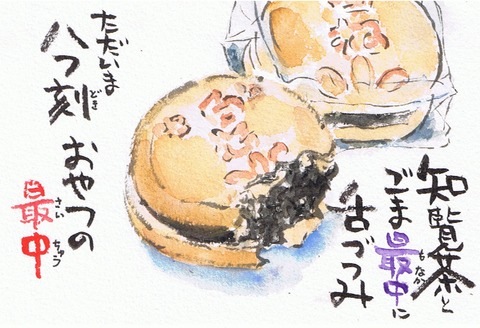 知覧茶と
ごま最中に
もなか
舌づつみ
ただいま
八つ刻
どき
おやつの
最中
さいちゅう